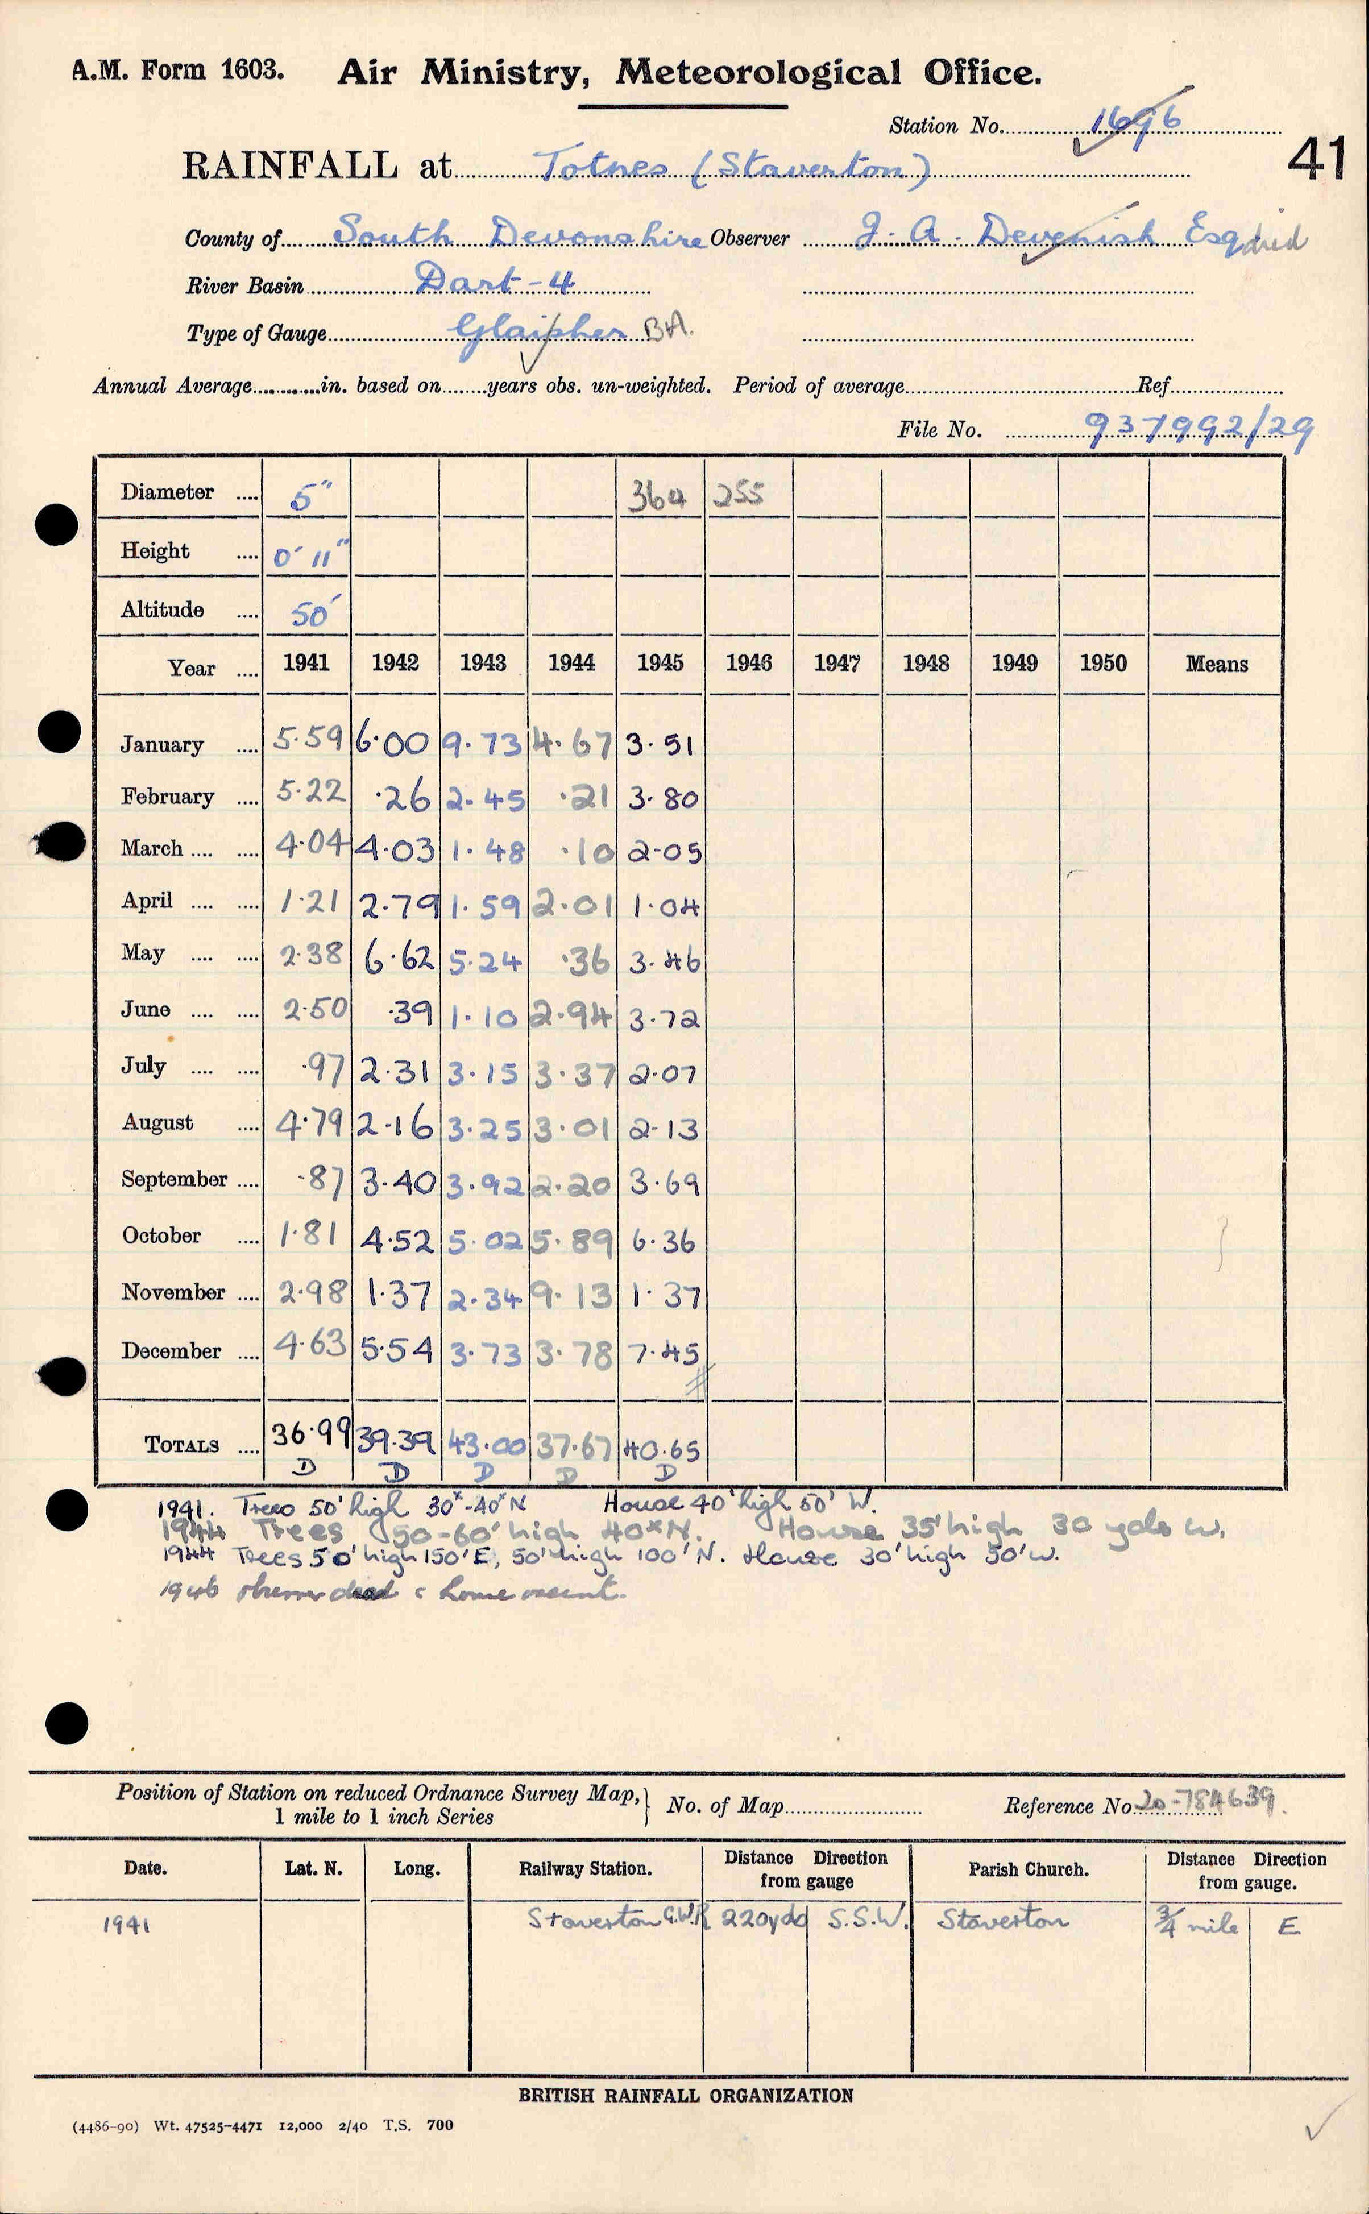 A.M. Form 1603. Air Ministry, Meteorological Office.
Station No. 1696
41
RAINFALL at Totnes (Staverton)
County of South Devonshire Observer J. A. Devenish Esq died
River Basin Dart-4
Type of Gauge Glaisher BA.
Annual Average in. based on years obs. un-weighted. Period of average Ref.
File No. 937992/29
Diameter 5" 364 255
Height 0' 11"
Altitude 50'
Year 1941 1942 1943 1944 1945 1946 1947 1948 1949 1950 Means
January 5.59 6.00 9.73 4.67 3.51
February 5.22 .26 2.45 .21 3.80
March 4.04 4.03 1.48 .10 2.05
April 1.21 2.79 1.59 2.01 1.04
May 2.38 6.62 5.24 .36 3.46
June 2.50 .39 1.10 2.94 3.72
July .97 2.31 3.15 3.37 2.07
August 4.79 2.16 3.25 3.01 2.13
September .87 3.40 3.92 2.20 3.69
October 1.81 4.52 5.02 5.89 6.36
November 2.98 1.37 2.34 9.13 1.37
December 4.63 5.54 3.73 3.78 7.45
TOTALS 36.99 39.39 43.00 37.67 40.65
D D D D D
1941. Trees 50' high 30x-40x N House 40' high 50' W.
1944 Trees 50-60' high 40x N. House 35' high 30 yds W.
1944 Trees 50' high 150' E, 50' high 100' N. House 30' high 50' W.
1946 observer dead & home vacant.
Position of Station on reduced Ordnance Survey Map, 1 mile to 1 inch Series } No. of Map Reference No 20-784639.
Date. Lat. N. Long. Railway Station. Distance Direction from gauge Parish Church. Distance Direction from gauge.
1941 Staverton G.W.R 220yds S.S.W. Staverton 3/4 mile E
BRITISH RAINFALL ORGANIZATION
(4486-90) Wt. 47525-4471 12,000 2/40 T.S. 700